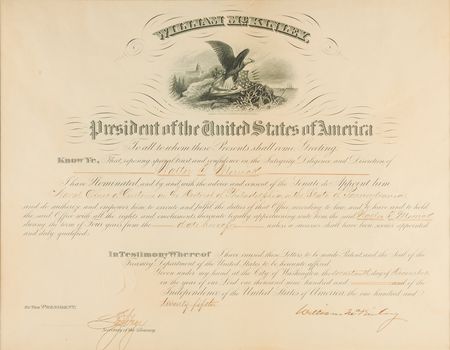 WILLIAM McKINLEY,
President of the United States of America
To all to whom these Presents shall come, Greeting:
KNOW YE, That reposing special trust and confidence in the Integrity, Diligence and Discretion of
I have Nominated, and by and with the advice and consent of the Senate do Appoint him
in the State of Pennsylvania
and do authorize and empower him to execute and fulfil the duties of that Office according to law, and to have and to hold
the said Office with all the rights and emoluments thereunto legally appertaining unto him the said
during the term of four years from the date hereof unless a successor shall have been sooner appointed
and duly qualified.
In Testimony Whereof I have caused these Letters to be made Patent and the Seal of the
Treasury Department of the United States to be hereunto affixed.
Given under my hand at the City of Washington the day of
in the year of our Lord one thousand nine hundred and of the
Independence of the United States of America the one hundred and
twenty-fifth
William McKinley
BY THE PRESIDENT:
Secretary of the Treasury